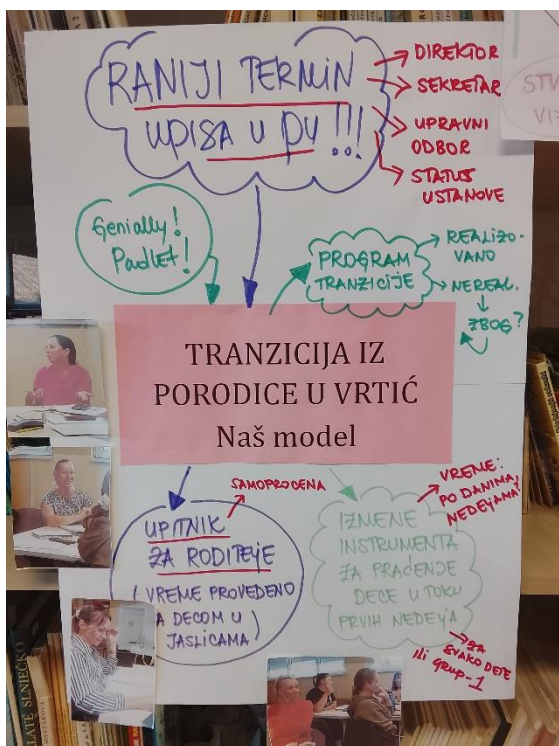 RANIJI TERMIN
UPISA U PU !!!
DIREKTOR
SEKRETAR
UPRAVNI
ODBOR
STATUS
USTANOVE
STV
VIZ
Genially!
Padlet!
PROGRAM
TRANZICIJE
REALIZO-
VANO
NEREAL.
ZBOG?
TRANZICIJA IZ
PORODICE U VRTIĆ
Naš model
SAMOPROCENA
UPITNIK
ZA RODITEљE
(VREME PROVEDENO
SA DECOM U
JASLICAMA)
VREME:
PO DANIMA,
NEDEљAMA!
IZMENE
INSTRUMENTA
ZA PRAĆENJE
DECE U TOKU
PRVIH NEDEљA
ZA
SVAKO DETE
ili GRUP-1
ZLATÉ SLNIEČKO